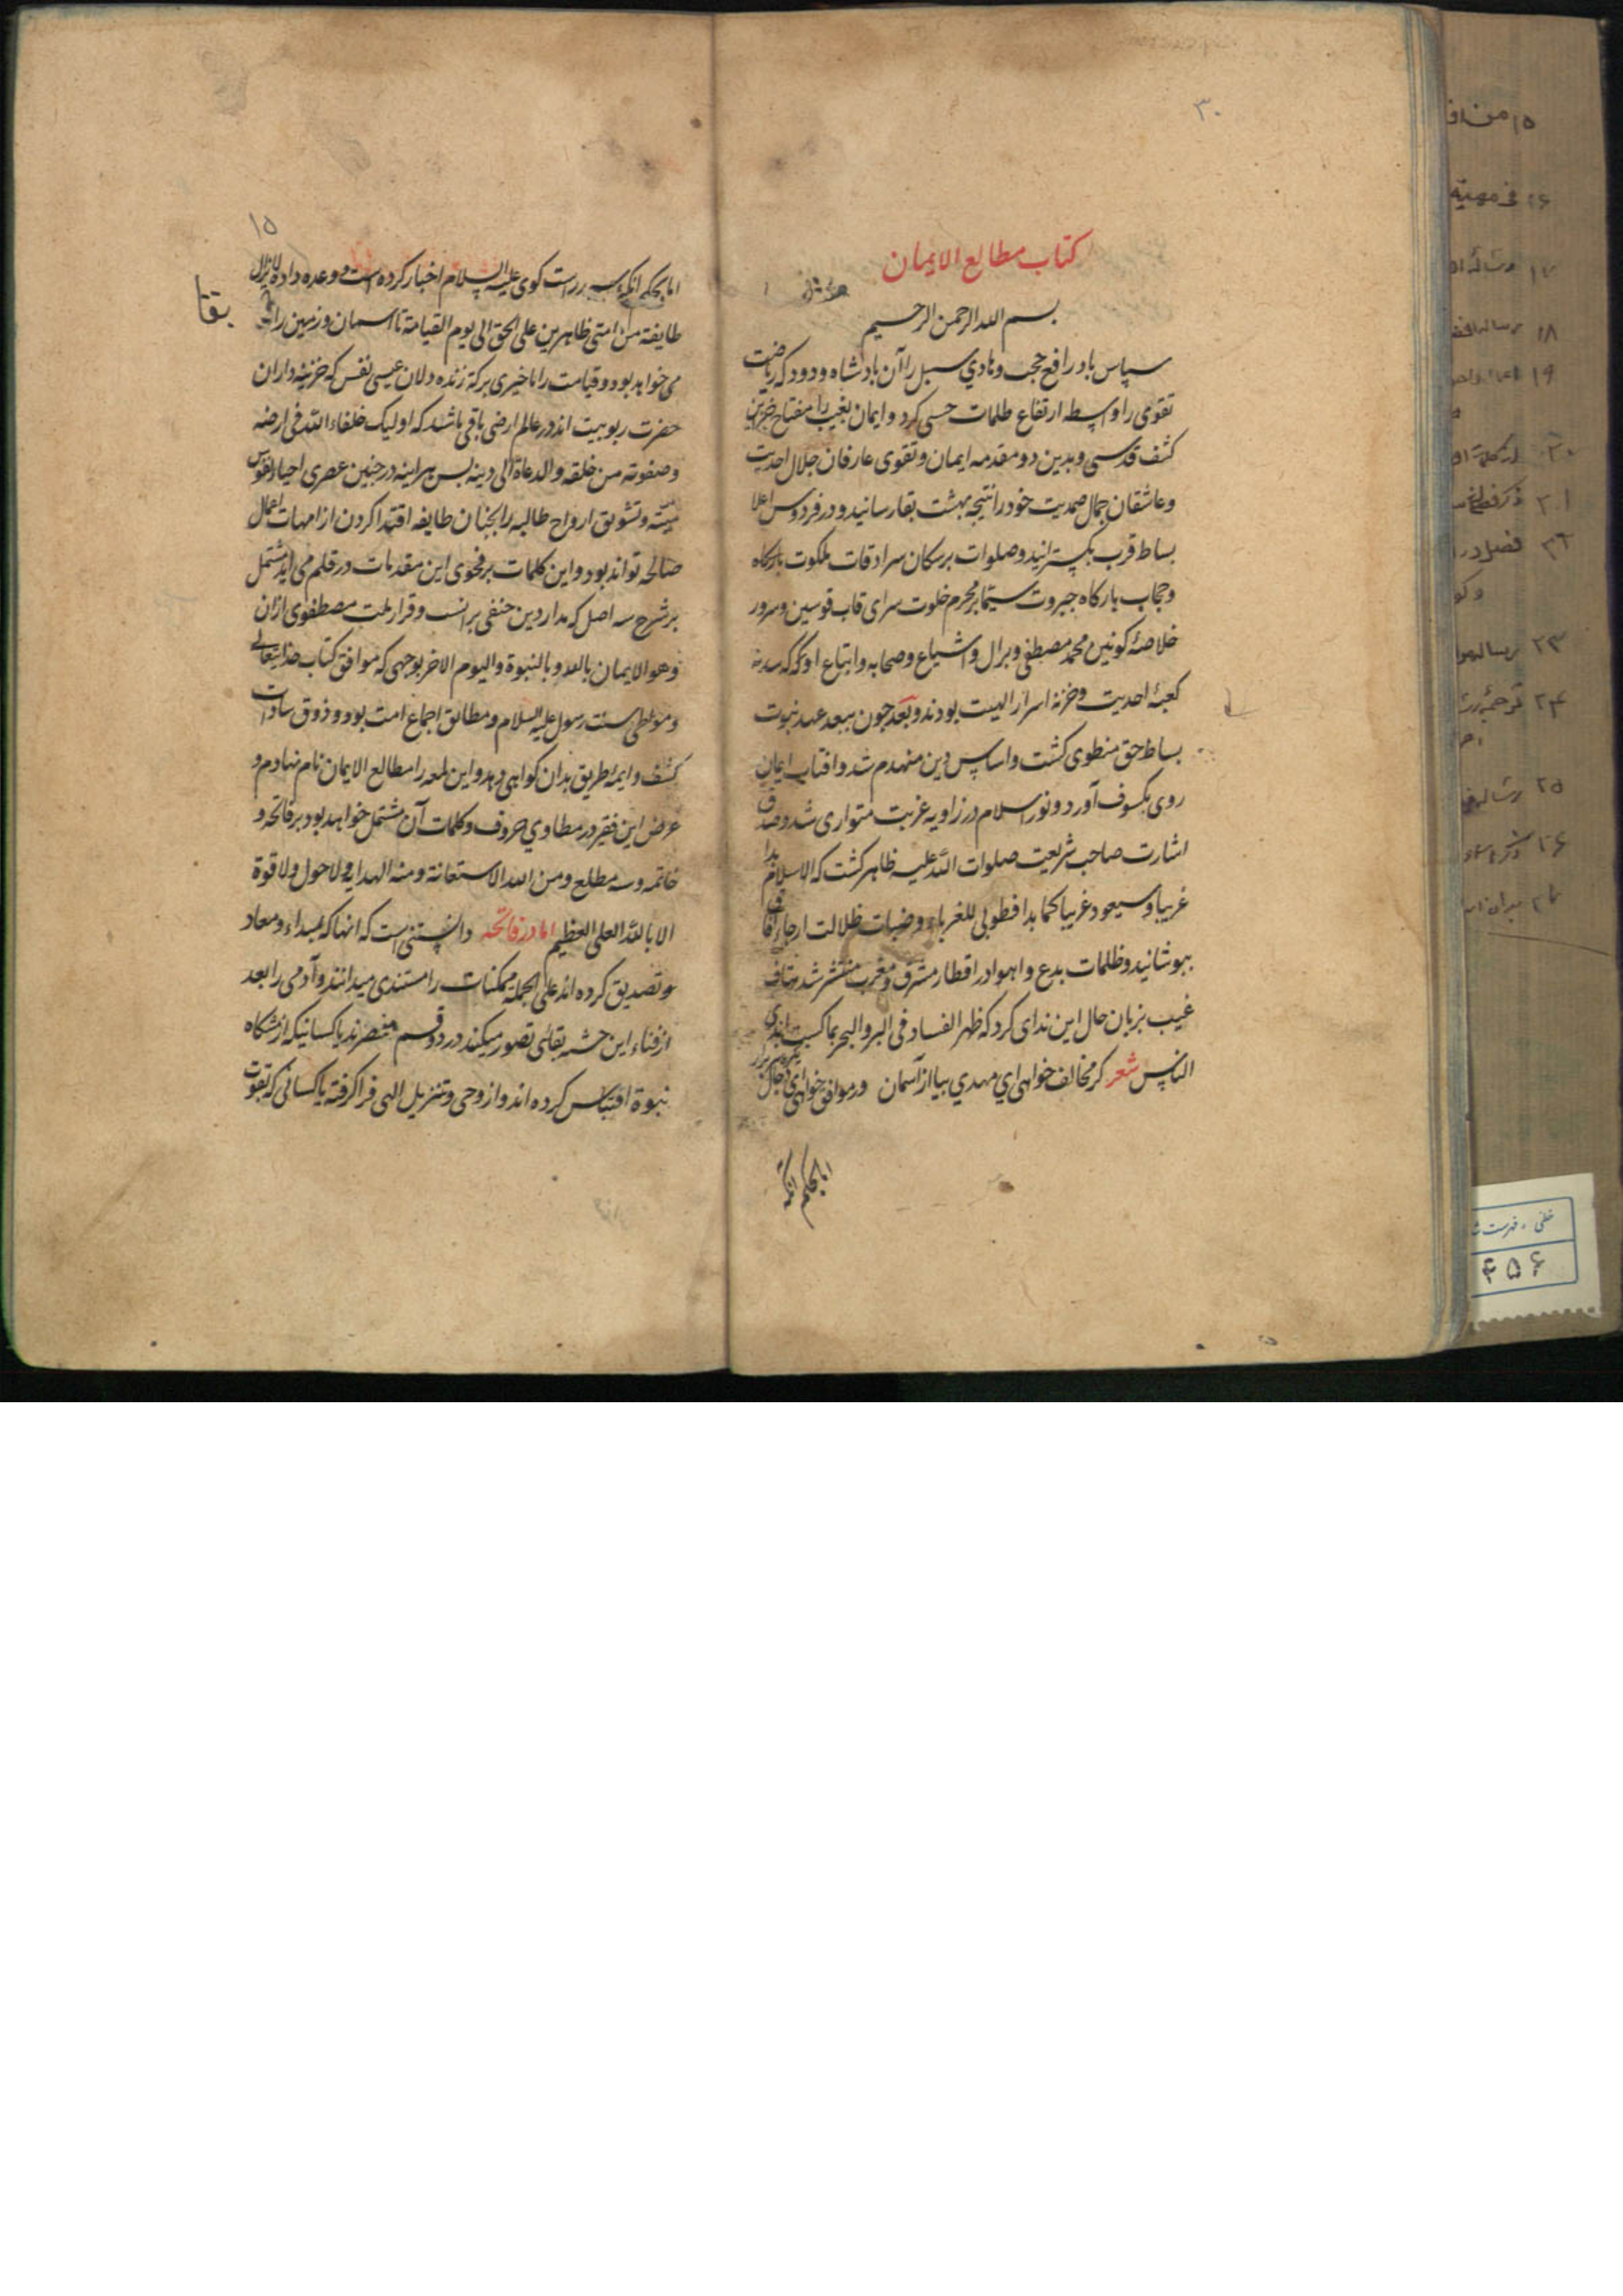 ۳۰
کتاب مطالع الایمان
بسم الله الرحمن الرحیم
سپاس باد رافع حجب و هادي سبل را آن بادشاه ودود که ریاضت
تقوی را واسطه ارتفاع ظلمات حسی کرد و ایمان بغیب را مفتاح خزاین
کشف قدسی و بدین دو مقدمه ایمان و تقوی عارفان جلال احدیت
و عاشقان جمال صمدیت خود را نتیجه بهشت بقا رسانید و در فردوس اعلا
بساط قرب بکسترانید و صلوات بر سکان سرادقات ملکوت بارکاه
و حجاب بارکاه جبروت سیما بر محرم خلوت سرای قاب قوسین و سرور
خلاصهٔ کونین محمد مصطفی و بر ال و اشیاع و صحابه و اتباع او که سدنه
کعبهٔ احدیت و خزنهٔ اسرار الهیت بودند و بعد چون ببعد عهد نبوت
بساط حق منطوی کشت و اساس دین منهدم شد و افتاب ایمان
روی بکسوف آورد و نور اسلام در زاویه غربت متواری شد و صدق
اشارت صاحب شریعت صلوات الله علیه ظاهر کشت که الاسلام بدا
غریبا و سیعود غریبا کما بدا فطوبی للغرباء و ضبات ظلالت ارجاء افاق
ببوشانید و ظلمات بدع و اهوا در اقطار مشرق و مغرب منتشر شد هاتف
غیب بزبان حال این ندای کرد که ظهر الفساد فی البر و البحر بما کسبت ایدی
الناس شعر کر مخالف خواهی ای مهدي بیا از آسمان ور موافق خواهی ای دجال
اما بحکم انکه
۱۵
اما بحکم انکه سرور راست کوی علیه السلام اخبار کرده است و وعده داده لا یزال
طایفة من امتی ظاهرین علی الحق الی یوم القیامة تا اسمان و زمین را
بقا
می خواهد بود و قیامت را تاخیری برکة زنده دلان عیسی نفس که خزینه داران
حضرت ربوبیت اند در عالم ارضی باقی باشد که اولیک خلفاء الله فی ارضه
و صفوته من خلقه و الدعاة الی دینه بس هراینه در جنین عصری احیاء نفوس
میته و تشویق ارواح طالبه را بجنان طایفه اقتدا کردن از امهات اعمال
صالحه تواند بود و این کلمات بر فحوی این مقدمات در قلم می اید مشتمل
بر شرح سه اصل که مدار دین حنفی برانست و قرار ملت مصطفوی ازان
و هو الایمان بالله و بالنبوة و الیوم الاخر بوجهی که موافق کتاب خدایتعالی
و موطی سنت رسول علیه السلام و مطابق اجماع امت بود و ذوق سادات
کشف و ایمهٔ طریق بدان کواهی دهد و این لمعه را مطالع الایمان نام نهادم و
عرض این فقیر در مطاوي حروف و کلمات آن مشتمل خواهد بود بر فاتحه و
خاتمه و سه مطلع و من الله الاستعانة و منه الهدایة و لا حول و لا قوة
الا بالله العلی العظیم اما در فاتحه دانستنی است که انها که بمبداء و معاد
تصدیق کرده اند علی الجمله ممکنات را مستندی میدانند و آدمی را بعد
از فناء این جثه بقائی تصور میکنند در دو قسم منحصرند یا کسانیکه از مشکاه
نبوة اقتباس کرده اند و از وحی و تنزیل الهی فرا کرفته یا کسانی که بقوت
خطی ، فهرست